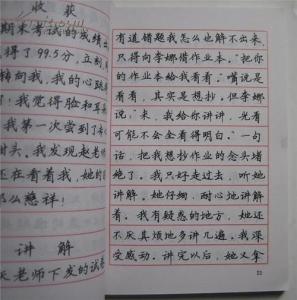 收获
期末考试的成绩出
得了99.5分,立刻,
转向我,我的心跳
!我觉得脸和耳朵
我第一次尝到了
甜头。我发现赵老师
还在看着我,她的
那么慈祥!
讲解
天老师下发的试卷
有道错题我怎么也解不出来,
只得向李娜借作业本:“把你
的作业本给我看看。”嘴说是
看看,其实是想抄。但李娜
说:“来,我给你讲讲,光看
可能不会全看得明白。”一句
话,把我想抄作业的念头堵
绝了。我只好走过去,听她
讲解。她仔细、耐心地讲解
着。我有疑惑的地方,她还
不厌其烦地多讲几遍。我深
受感动。讲完以后,她又拿